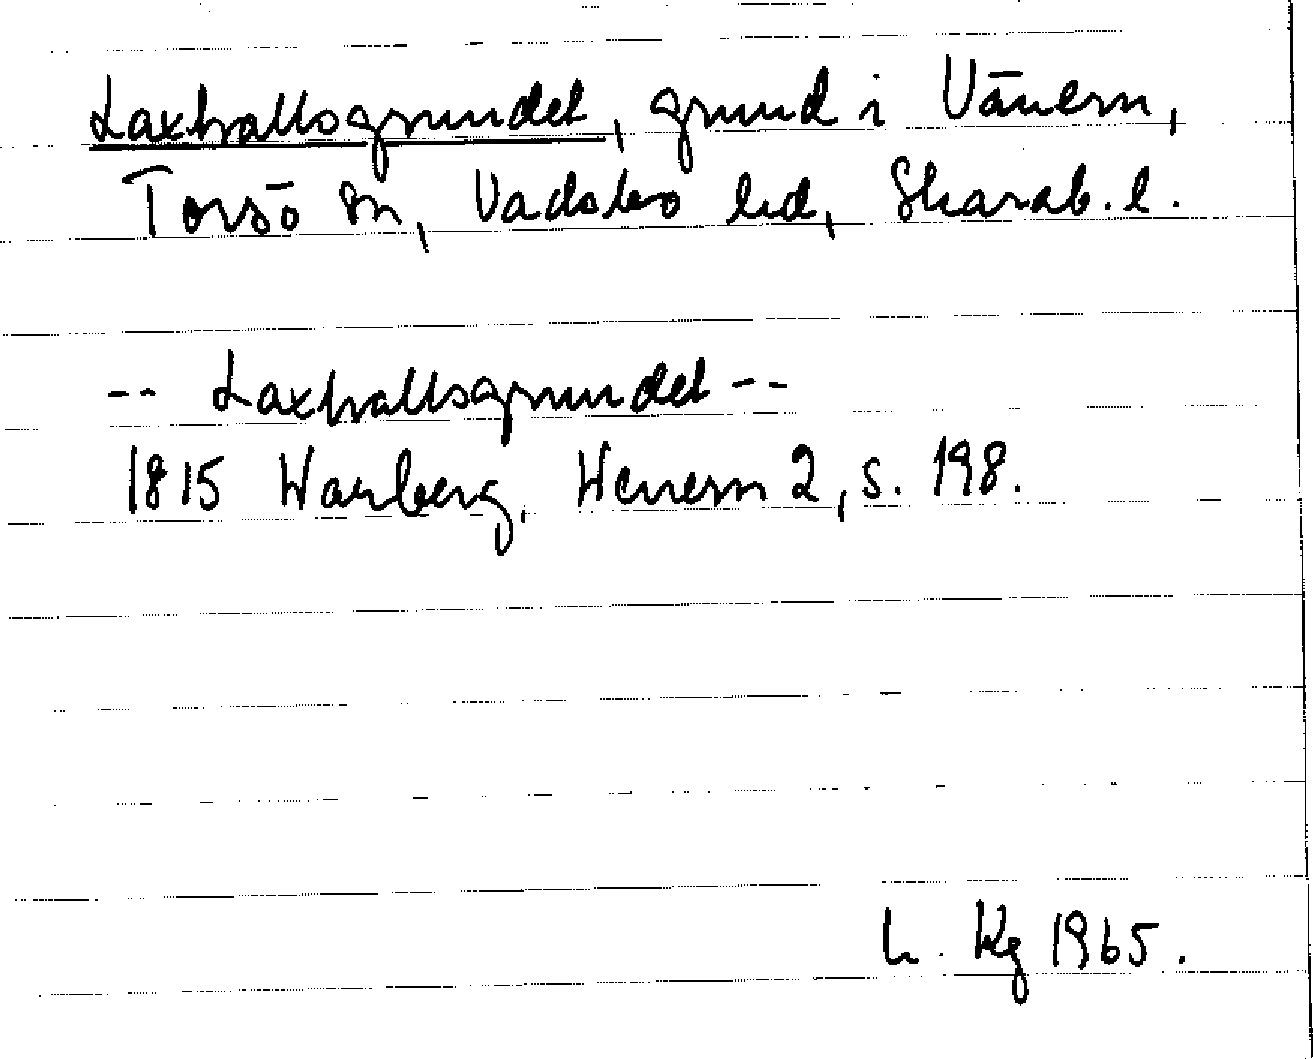 Laxhallsgrundet, grund i Vänern,
Torsö sn, Vadsbo hd, Skarab. l.
-- Laxhallsgrundet --
1815 Warberg, Wenern 2, s. 198.
Kg 1965.